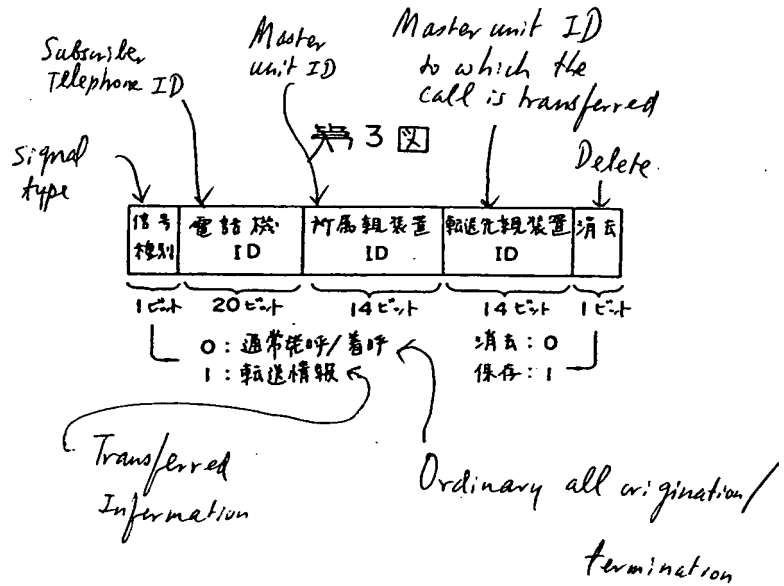 Subscriber
Telephone ID
Master
unit ID
Master unit ID
to which the
call is transferred
signal
type
第3図
Delete
信号
種別
電話機
ID
所属親装置
ID
転送先親装置
ID
消去
1ビット
20ビット
14ビット
14ビット
1ビット
0:通常発呼/着呼
1:転送情報
消去:0
保存:1
Transferred
Information
Ordinary all origination/
termination